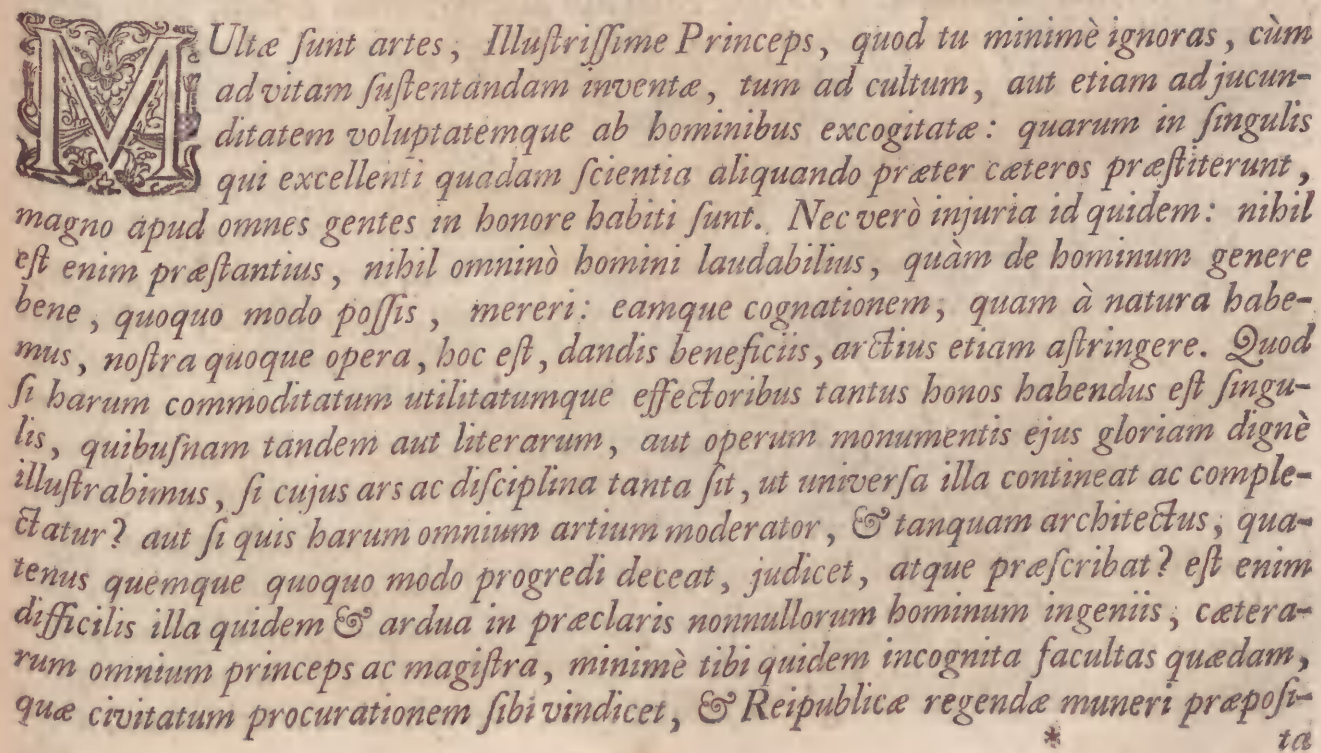 MUltæ ſunt artes, Illuſtriſſime Princeps, quod tu minimè ignoras, cùm
ad vitam ſuſtentandam inventæ, tum ad cultum, aut etiam ad jucun-
ditatem voluptatemque ab hominibus excogitatæ: quarum in ſingulis
qui excellenti quadam ſcientia aliquando præter cæteros præſtiterunt,
magno apud omnes gentes in honore habiti ſunt. Nec verò injuria id quidem: nihil
eſt enim præſtantius, nihil omninò homini laudabilius, quàm de hominum genere
bene, quoquo modo poſſis, mereri: eamque cognationem, quam à natura habe-
mus, noſtra quoque opera, hoc eſt, dandis beneficiis, arctius etiam aſtringere. Quod
ſi harum commoditatum utilitatumque effectoribus tantus honos habendus eſt ſingu-
lis, quibuſnam tandem aut literarum, aut operum monumentis ejus gloriam dignè
illuſtrabimus, ſi cujus ars ac diſciplina tanta ſit, ut univerſa illa contineat ac comple-
ctatur? aut ſi quis harum omnium artium moderator, & tanquam architectus, qua-
tenus quemque quoquo modo progredi deceat, judicet, atque præſcribat? eſt enim
difficilis illa quidem & ardua in præclaris nonnullorum hominum ingeniis, cætera-
rum omnium princeps ac magiſtra, minimè tibi quidem incognita facultas quædam,
quæ civitatum procurationem ſibi vindicet, & Reipublicæ regendæ muneri præpoſi-
* ta